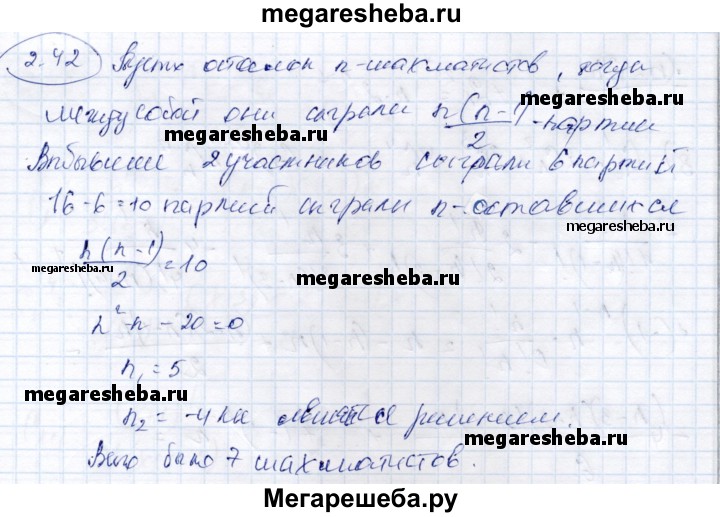 megaresheba.ru
2.42 Пусть осталось n-шахматистов, тогда
между собой они сыграли n(n-1)/2 партии
megaresheba.ru megaresheba.ru
Выбывшие 2 участников сыграли 6 партий
16-6=10 партий сыграли n-оставшихся
megaresheba.ru
n(n-1)/2=10
megaresheba.ru megaresheba.ru megaresheba.ru
n²-n-20=0
n₁=5
megaresheba.ru megaresheba.ru
n₂=-4 не решением.
megaresheba.ru
Всего было 7 шахматистов.
Мегарешеба.ру